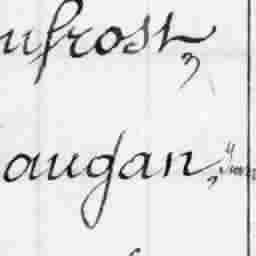 ufrost,
augan,